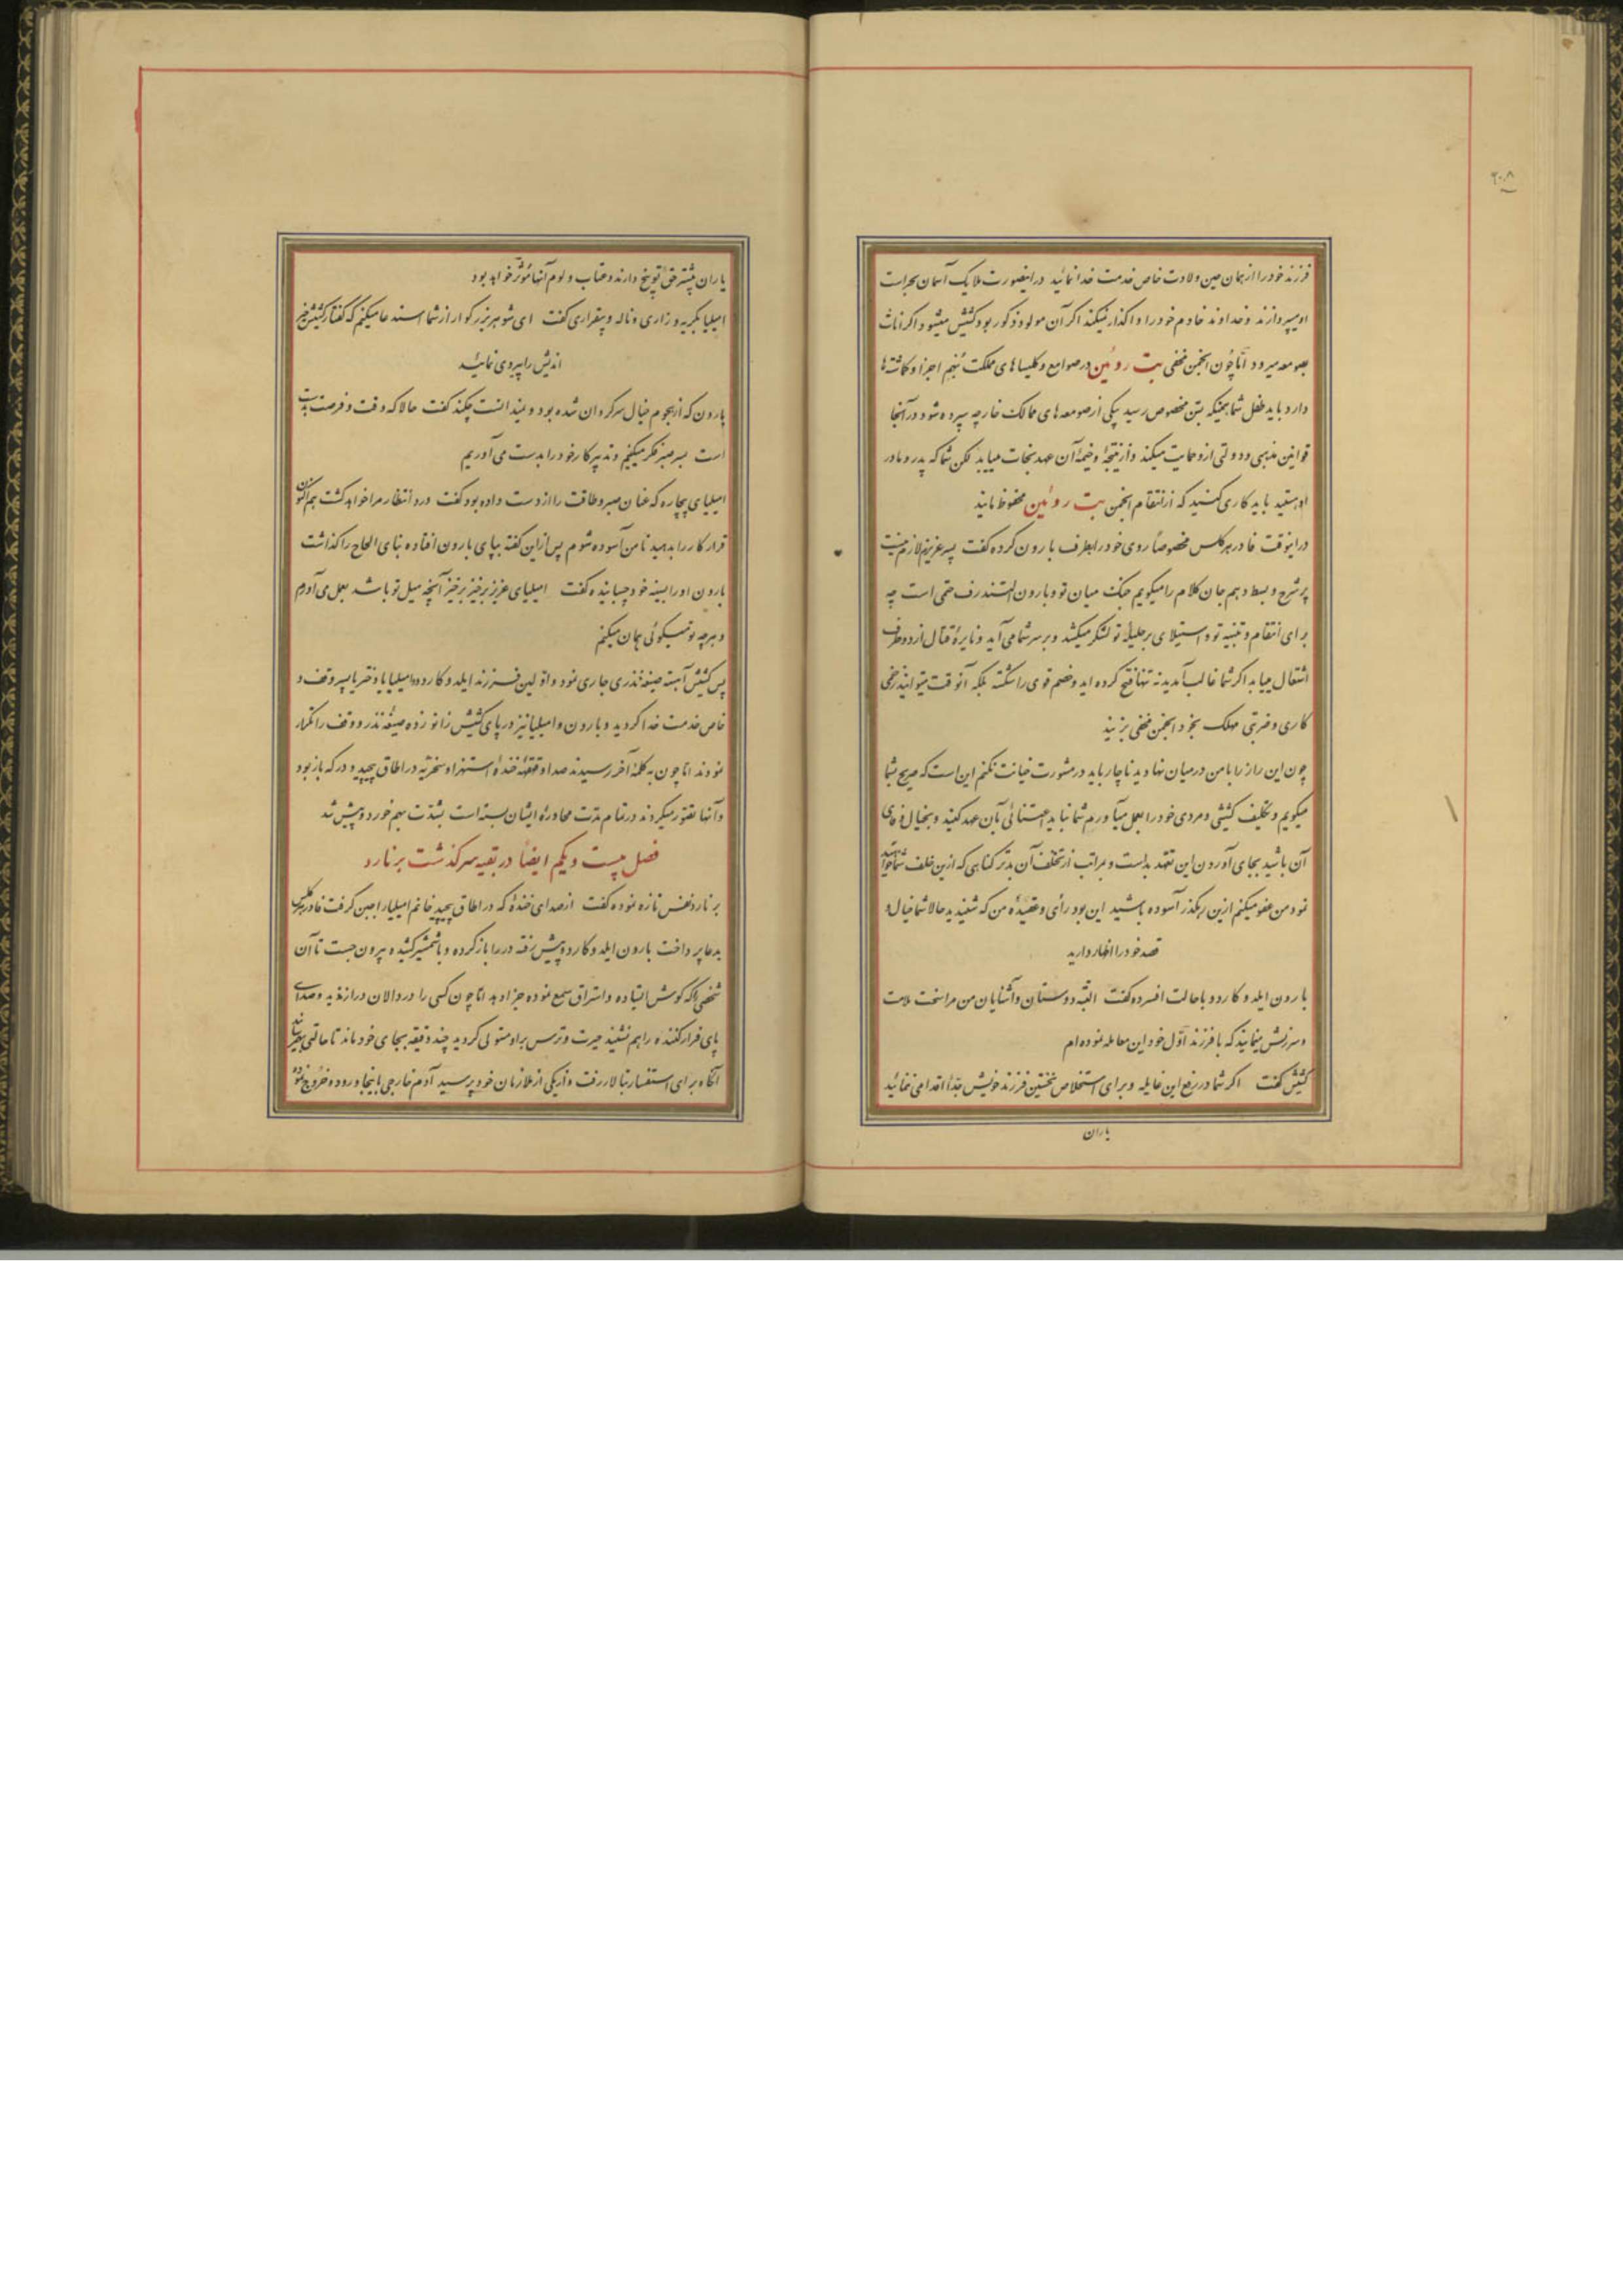 ۲۰۸
فرزند خود را از همان حین ولادت خاص خدمت خدا نمائید در اینصورت ملایک آسمان بحراست
او میپردازند و خداوند خادم خود را وا گذار نمیکند اگر آن مولود ذکور بود کشیش میشود اگر اناث
بصومعه میرود امّا چون انجمن مخفی بت روئین در صوامع و کلیساهای مملکت نُهم اجزا و گماشتها
دارد باید طفل شما همینکه بسن مخصوص رسید بیکی از صومعه های ممالک خارجه سپرده شود در آنجا
قوانین مذهبی و دولتی ازو حمایت میکند و از نتیجهٔ وخیمهٔ آن عهد نجات مییابد لکن شما که پدر و مادر
او هستید باید کاری کنید که از انتقام انجمن بت روئین محفوظ مانید
در اینوقت فادر هرکلس مخصوصاً روی خود را بطرف بارون کرده گفت پسر عزیزم لازم نیست
پر شرح و بسط دهم جان کلام را میگویم جنگ میان تو و بارون التندرف حتمی است چه
برای انتقام و تنبیه تو و استیلای بر جلیلهٔ تو لشکر میکشد و بر سر شما می آید و نایرهٔ قتال از دو طرف
اشتعال مییابد اگر شما غالب آمدید نه تنها فتح کرده اید و خصم قوی را شکسته بلکه آنوقت میتوانید زخمی
کاری و ضربتی مهلک بخود انجمن مخفی بزنید
چون این راز را با من در میان نهادید ناچار باید در مشورت خیانت نکنم این است که صریح بشما
میگویم و تکلیف کشیشی و مردی خود را بعمل میآورم شما نباید اعتنائی بآن عهد کنید و بخیال وفای
آن باشید بجای آوردن این تعهد بد است و بمراتب از تخلف آن بدتر گناهی که ازین خلف شما خواهید
نمود من عفو میکنم ازین رهگذر آسوده باشید این بود رأی و عقیدهٔ من که شنیدید حالا شما خیال و
قصد خود را اظهار دارید
بارون ایلدوکاردو با حالت افسرده گفت البته دوستان و آشنایان من مرا سخت ملامت
و سرزنش مینمایند که با فرزند اوّل خود این معامله نموده ام
کشیش گفت اگر شما در رفع این غایله و برای استخلاص نخستین فرزند خویش جدّاً اقدامی ننمائید
یاران
یاران بیشتر حقّ توبیخ دارند و عتاب و لوم آنها مُؤثر خواهد بود
امیلیا بگریه و زاری و ناله و بیقراری گفت ای شوهر بزرگوار از شما استدعا میکنم که گفتار کشیش خیر
اندیش را پیروی نمائید
بارون که از هجوم خیال سرگردان شده بود و نمیدانست چکند گفت حالا که وقت و فرصت بدست
است سر صبر فکر میکنیم و تدبیر کار خود را بدست می آوریم
امیلیای بیچاره که عنان صبر و طاقت را از دست داده بود گفت درد انتظار مرا خواهد کشت هم اکنون
قرار کار را بدهید تا من آسوده شوم پس از این گفته بپای بارون افتاده بنای الحاح را گذاشت
بارون او را بسینهٔ خود چسبانیده گفت امیلیای عزیز برخیز برخیز آنچه میل تو باشد بعمل می آورم
و هرچه تو میگوئی همان میکنم
پس کشیش آهسته صیغهٔ نذری جاری نمود و اوّلین فرزند ایلدوکاردو و امیلیا یا دختر یا پسر وقف و
خاص خدمت خدا گردید و بارون و امیلیا نیز در پای کشیش زانو زده صیغهٔ نذر و وقف را تکرار
نمودند امّا چون به کلمهٔ آخر رسیدند صدا و قهقههٔ خندهٔ استهزاء و سخریّه در اطاق پیچید و در که باز بود
و آنها تصوّر میکردند در تمام مدّت محاورهٔ ایشان بسته است بشدّت بهم خورد و پیش شد
فصل بیست و یکم ایضاً در بقیه سرگذشت برنارد
برنارد نفس تازه نموده گفت از صدای خندهٔ که در اطاق پیچید خانم امیلیا را جبن گرفت فادر هرکلس
بدعا پرداخت بارون ایلدوکاردو پیش رفته در را باز کرده و با شمشیر کشیده بیرون جست تا آن
شخصی را که گوش ایستاده و استراق سمع نموده جزا دهد امّا چون کسی را در دالان دراز ندید و صدای
پای فرار کننده را هم نشنید حیرت و ترس براو مستولی گردید چند دقیقه بجای خود ماند تا حالتی
آنگاه برای استفسار بتالار رفت و از یکی از ملازمان خود پرسید آدم خارجی باینجا ورود و خروج نموده